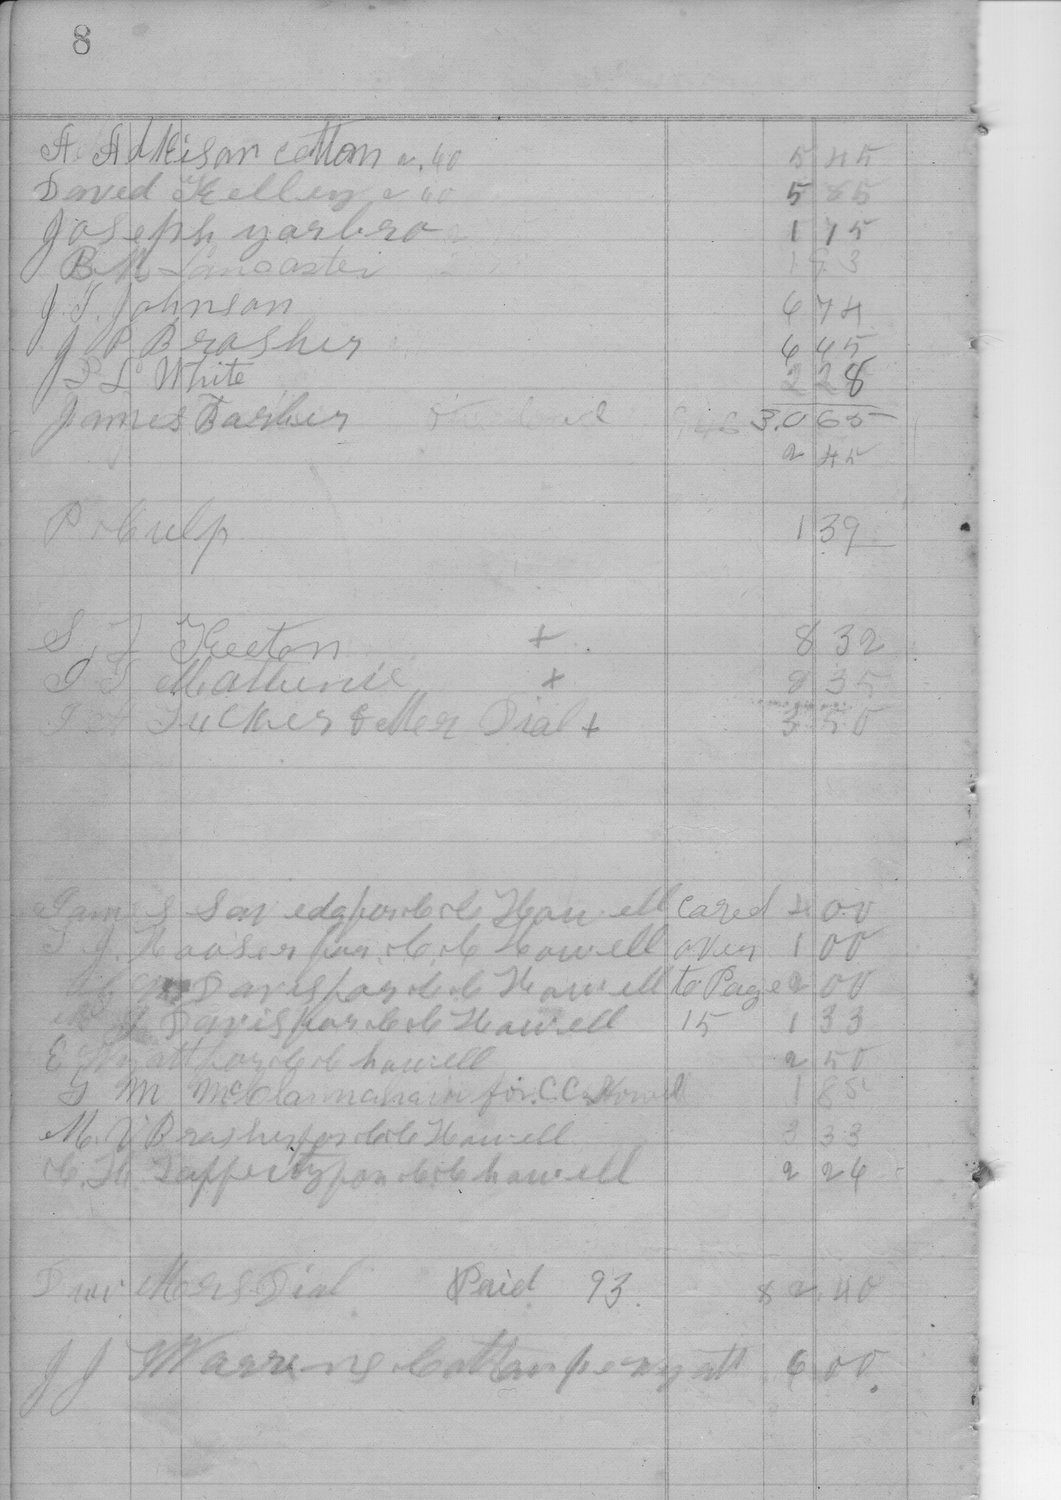 8
A. Adkison cotton 40 5 45
David Kelley 5 85
Joseph yarbro 1 75
B M Lancaster 1 93
J. T. Johnson 6 74
J P Brasher 6 45
J P L White 2 28
James Barber 3.0 65
2 45
P Culp 1 39
S. J Keeton + 8 32
J T Mathenie + 8 35
Tucker & Mer Dial + 3 50
James Son edg for C C Howell cared 4 00
T J. Hooser for C. C Howell over 1 00
Davis for C C Howell to Page 2 00
J Davis for C C Howell 15 1 33
E Wyatt for C C howell 2 50
G M McClannahan for C.C. Howell 1 85
M. V Brasher for C C Howell 3 33
C. H. Tapperty for C C howell 2 24
Mers Dial Paid 93. $ 2.40
J J Warrens Cotton pe wyatt 6 00.